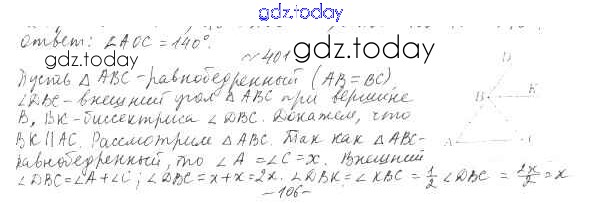 gdz.today
Ответ: ∠AOC = 140°.
№ 401
gdz.today
Пусть △ ABC - равнобедренный (AB = BC)
∠DBC - внешний угол △ ABC при вершине
B, BK - биссектриса ∠ DBC. Докажем, что
BK || AC. Рассмотрим △ ABC. Так как △ ABC-
равнобедренный, то ∠ A = ∠C = x. Внешний
∠DBC = ∠A + ∠C; ∠DBC = x + x = 2x. ∠DBK = ∠KBC = 1/2 ∠DBC = 2x/2 = x
D
B
K
A
C
-106-
gdz.today